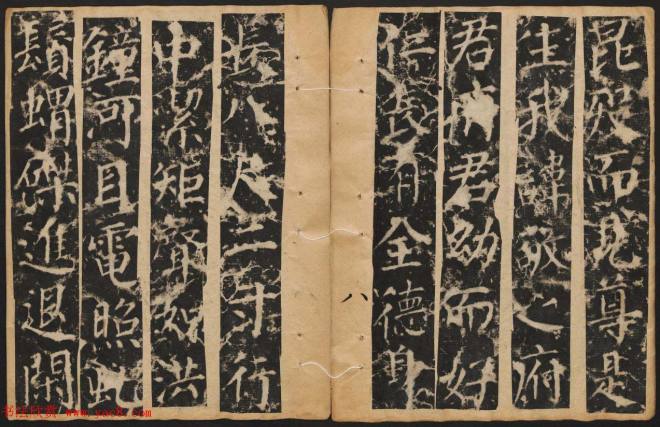 昆而見尊是
生我諱敬之府
君府君幼而好
長有全德身
八
長八尺二寸行
中絜矩聲如洪
鐘河目電照虬
鬚蝟磔進退閑
书法欣赏 www.yac8.com